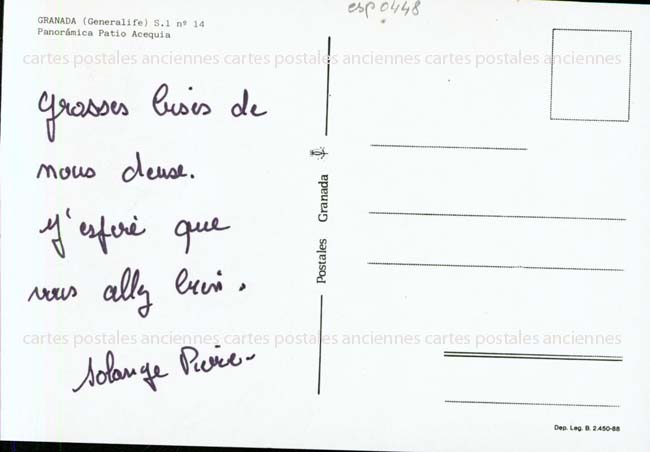 esp0448
GRANADA (Generalife) S.1 nº 14
Panorámica Patio Acequia
cartes postales anciennes cartes postales anciennes cartes postales anciennes
Grosses bises de
nous deux.
J'espère que
vous allez bien.
Solange Pierre
Postales Granada
cartes postales anciennes cartes postales anciennes cartes postales anciennes
Dep. Leg. B. 2.450-88